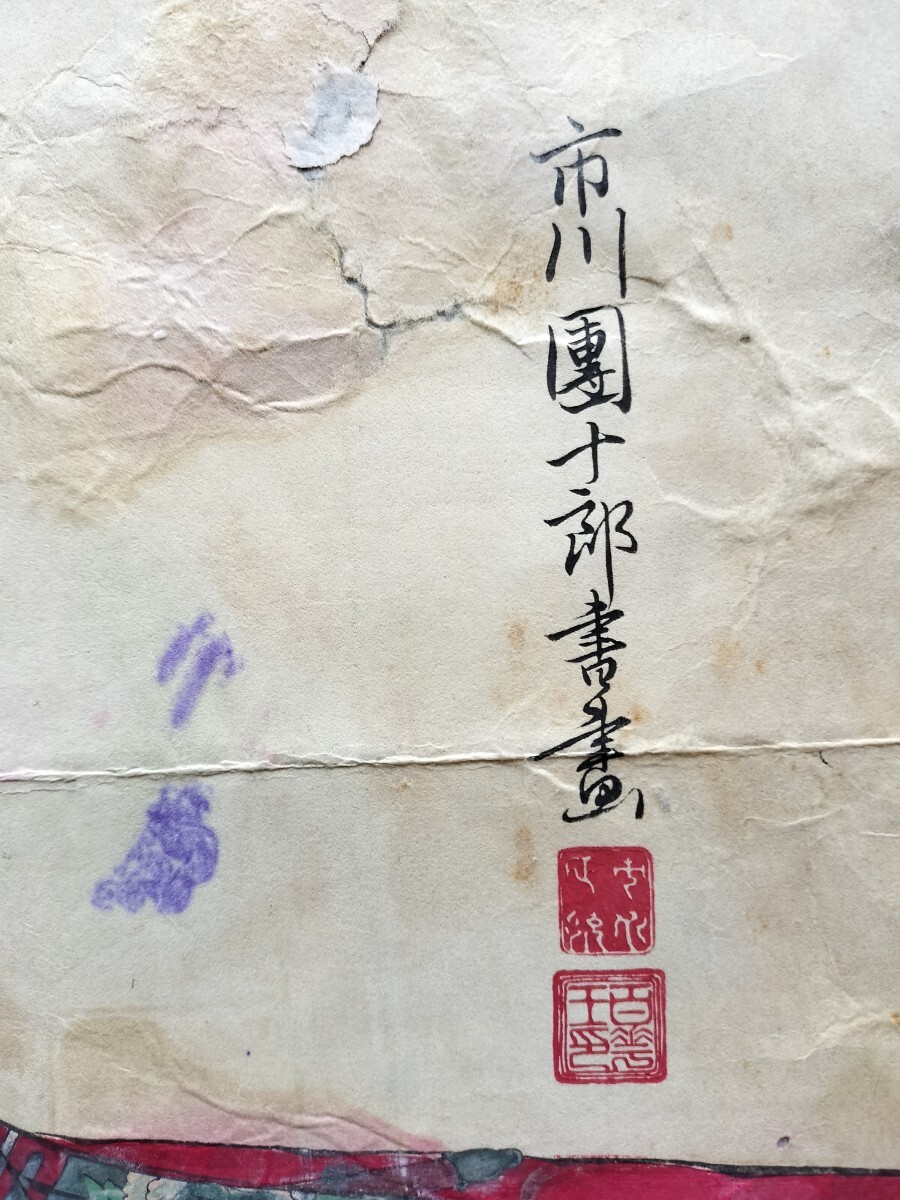 市川團十郎書畫